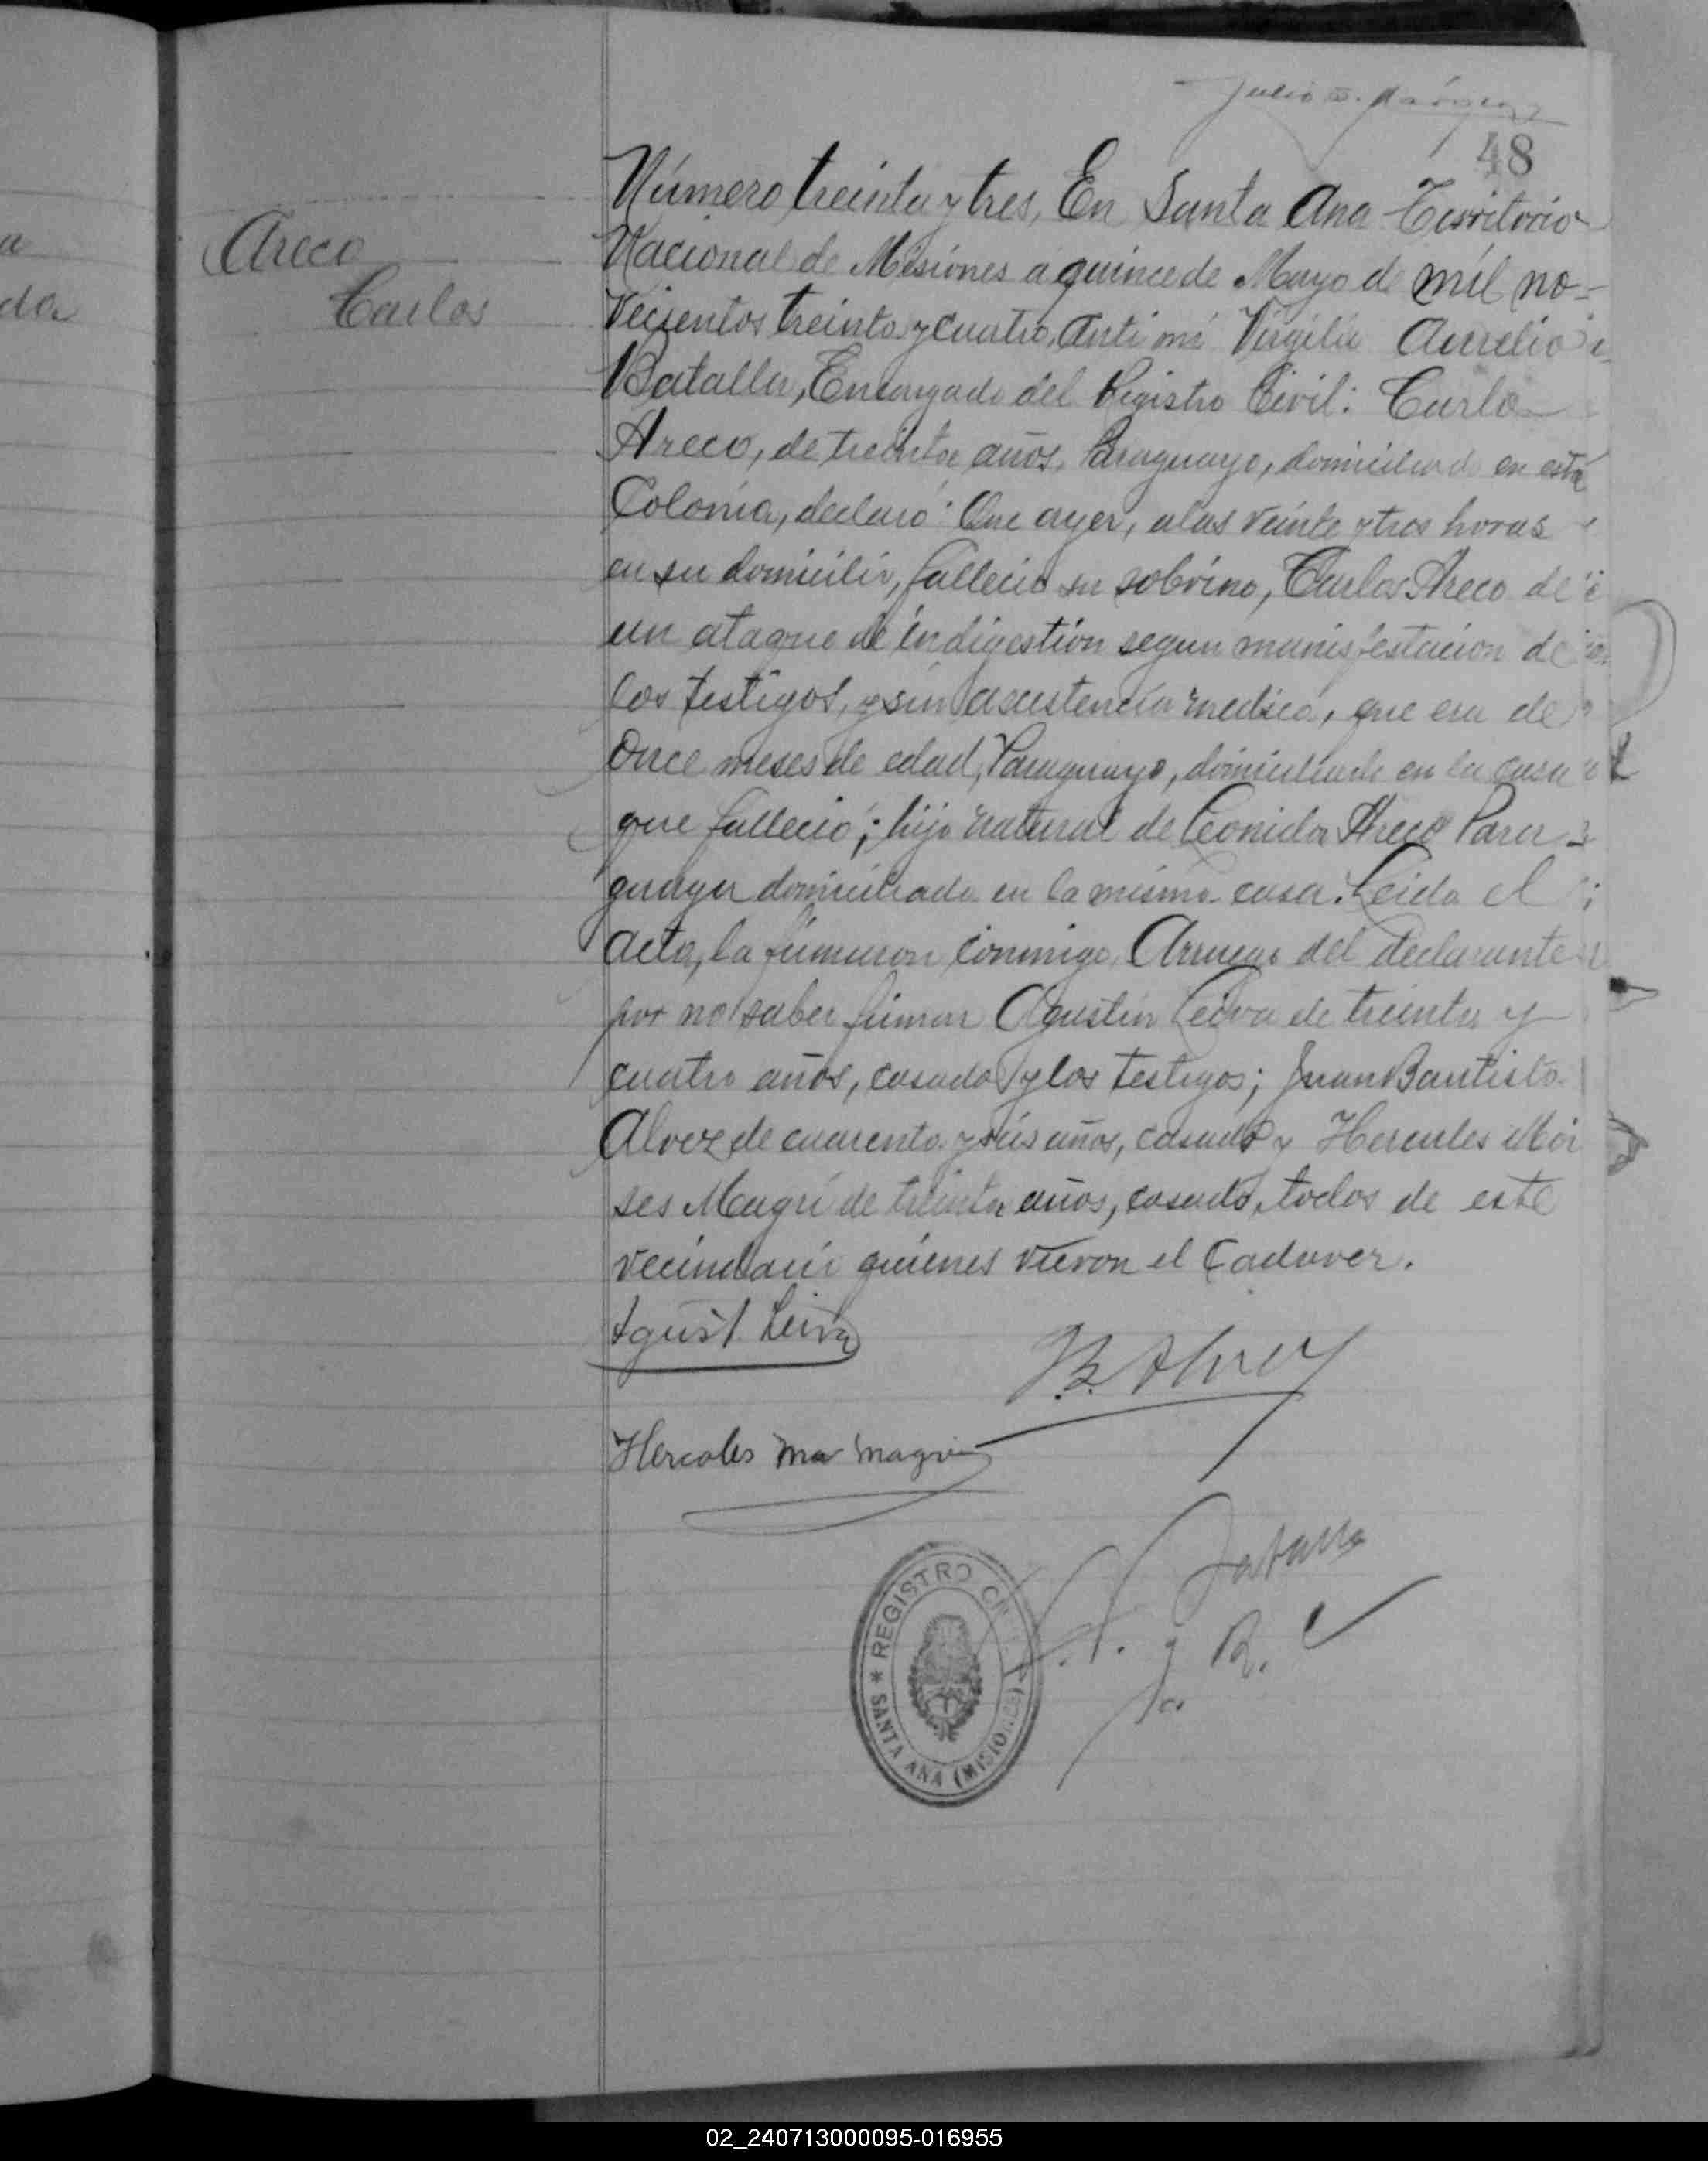 Julio
48
Areco
Carlos
a
da
Número treinta y tres, En Santa Ana Territorio
Nacional de Misiones a quince de Mayo de mil no-
vecientos treinta y cuatro, Ante mí Virgilio Aurelio
Batalla, Encargado del Registro Civil: Carlo
Areco, de treinta años, Paraguayo, domiciliado en esta
Colonia, declaró: Que ayer, a las veinte y tres horas
en su domicilio, falleció su sobrino, Carlos Areco de
un ataque de indigestión segun manisfestacion de
los testigos, y sin asistencia medica, que era de
once meses de edad, Paraguayo, domiciliado en la casa
que falleció; hijo natural de Leonida Areco Para
guaya domiciliada en la misma casa. Leida el
acta, la firmaron conmigo Arruego del declarante
por no saber firmar Agustin Leiva de treinta y
cuatro años, casado y los testigos; Juan Bautista
Alvez de cuarenta y seis años, casado y Hercules Moi
ses Magri de treinta años, casado, todos de este
vecindario quienes vieron el Cadaver.
Agust Leiva
B. Alvez
Hercoles Magri
Batalla
REGISTRO CIVIL
* SANTA ANA (MISIONES) *
02_240713000095-016955